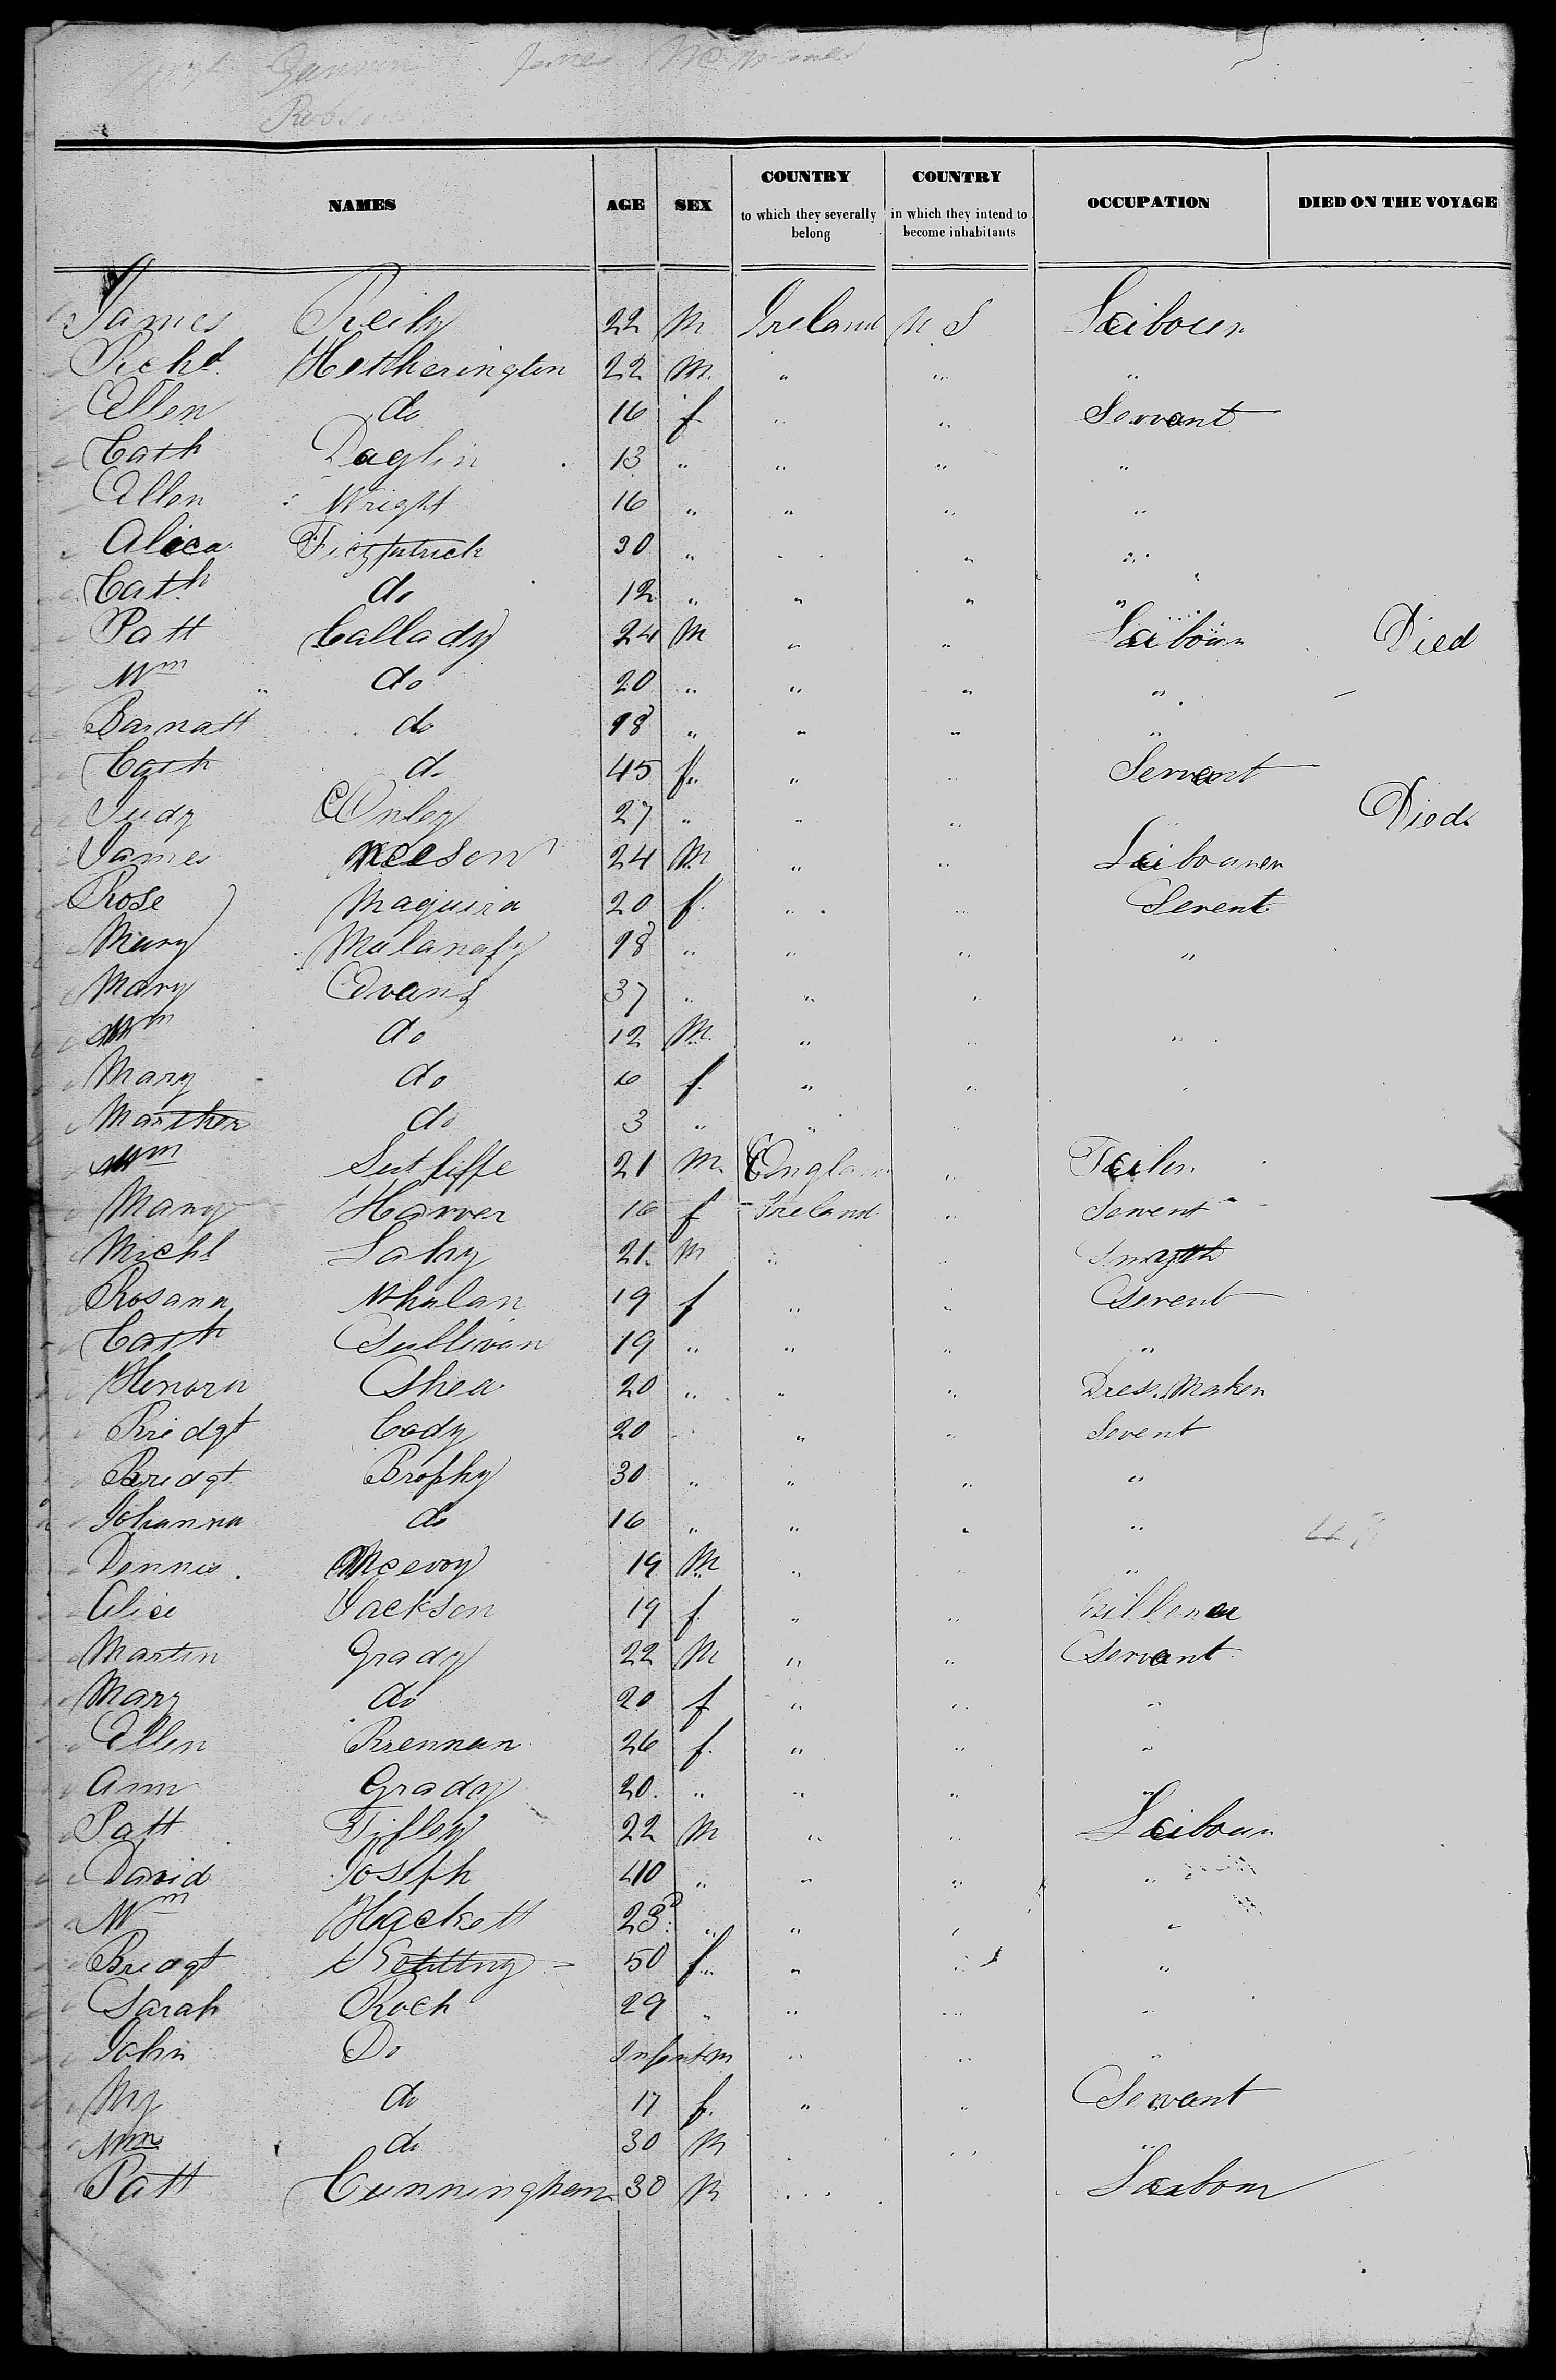 NAMES AGE SEX COUNTRY to which they severally belong COUNTRY in which they intend to become inhabitants OCCUPATION DIED ON THE VOYAGE
James Reily 22 M Ireland U S Labour
Richd. Hetherington 22 M. " " "
Ellen do 16 f " " Servant
Cath Daglin 13 " " " "
Ellen Wright 16 " " " "
Alica Fitzpatrick 30 " " " "
Cath do 12 " " " "
Patt Callady 24 M " " Labour Died
Wm do 20 " " " "
Barnatt do 18 " " " "
Cath do 45 f " " Servent
Judy Conley 27 " " " Died
James Neeson 24 M " " Labourer
Rose Maguira 20 f. " " Servent
Mary Mulanafy 18 " " " "
Mary Evans 37 " " "
Wm do 12 M. " " "
Mary do 6 f. " " "
Marther do 3 " " "
Wm Sutliffe 21 M. England " Tailer
Mary Harver 16 f Ireland " Servent
Michl Lahy 21 M " " Smyth
Rosana Whalan 19 f " " Servent
Cath Sullivan 19 " " " "
Honora Shea 20 " " " Dres. Maker
Bridgt Cody 20 " " " Servent
Bridgt Brophy 30 " " " "
Johanna do 16 " " " "
Dennis Mcevoy 19 M " " "
Alice Jackson 19 f. " "
Martin Grady 22 M " " Servant
Mary do 20 f " " "
Ellen Brennan 26 f. " " "
Ann Grady 20. " " " "
Patt Tifley 22 M " " Labour
David Joseph 40 " " " "
Wm Hackett 23 " " " "
Bridgt 50 f " " "
Sarah Roch 29 " " " "
John Do Infant M " " "
My do 17 f. " " Servant
Wm do 30 M " " "
Patt Cunningham 30 M " Labour